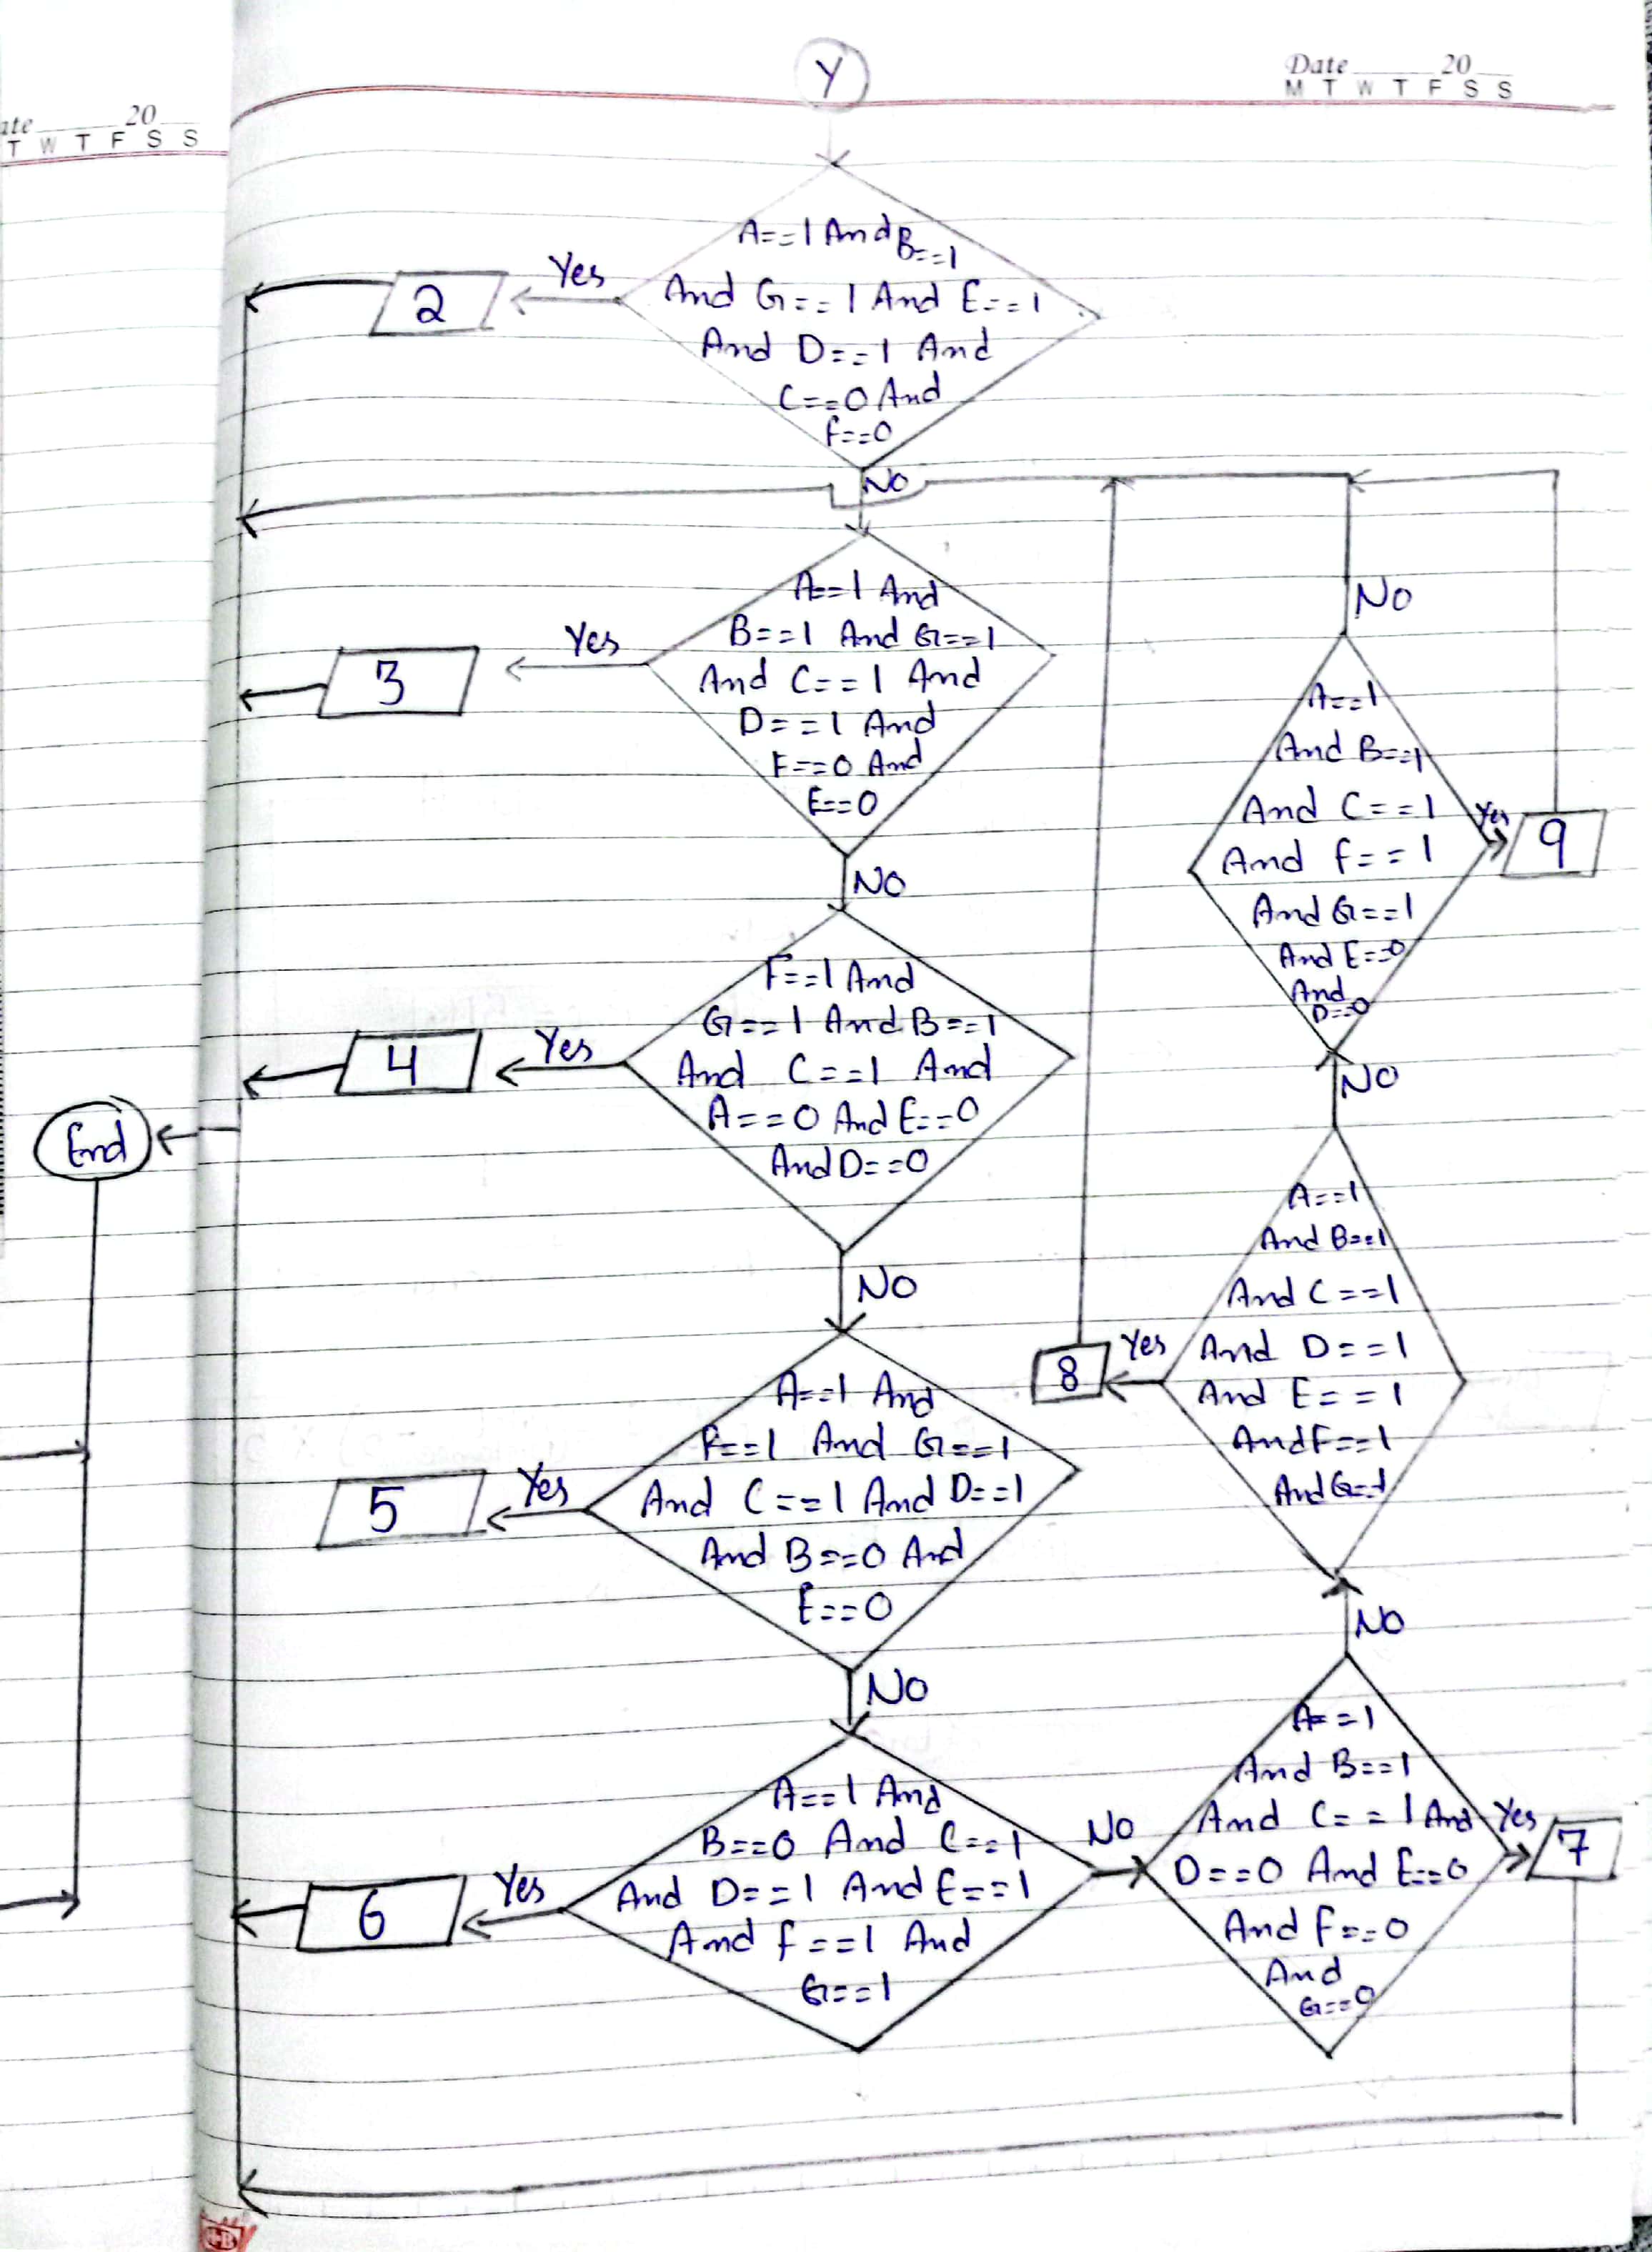 Y
Date 20
M T W T F S S
20
T W T F S S
A==1 And B==1
And G==1 And E==1
And D==1 And
C==0 And
F==0
Yes
2
No
A==1 And
B==1 And G==1
And C==1 And
D==1 And
F==0 And
E==0
Yes
3
No
F==1 And
G==1 And B==1
And C==1 And
A==0 And E==0
And D==0
Yes
4
End
No
A==1 And
F==1 And G==1
And C==1 And D==1
And B==0 And
E==0
Yes
5
No
A==1 And
B==0 And C==1
And D==1 And E==1
And F==1 And
G==1
Yes
6
No
A==1
And B==1
And C==1 And
D==0 And E==0
And F==0
And
G==0
Yes
7
No
A==1
And B==1
And C==1
And D==1
And E==1
And F==1
And G==1
Yes
8
No
A==1
And B==1
And C==1
And F==1
And G==1
And E==0
And
D==0
Yes
9
No